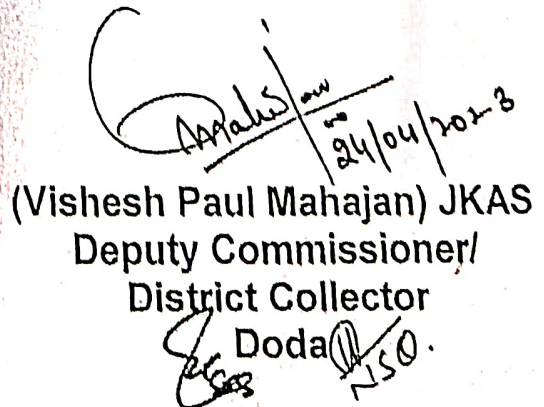 Mahajan
24/04/2023
(Vishesh Paul Mahajan) JKAS
Deputy Commissioner/
District Collector
Doda
NSO.